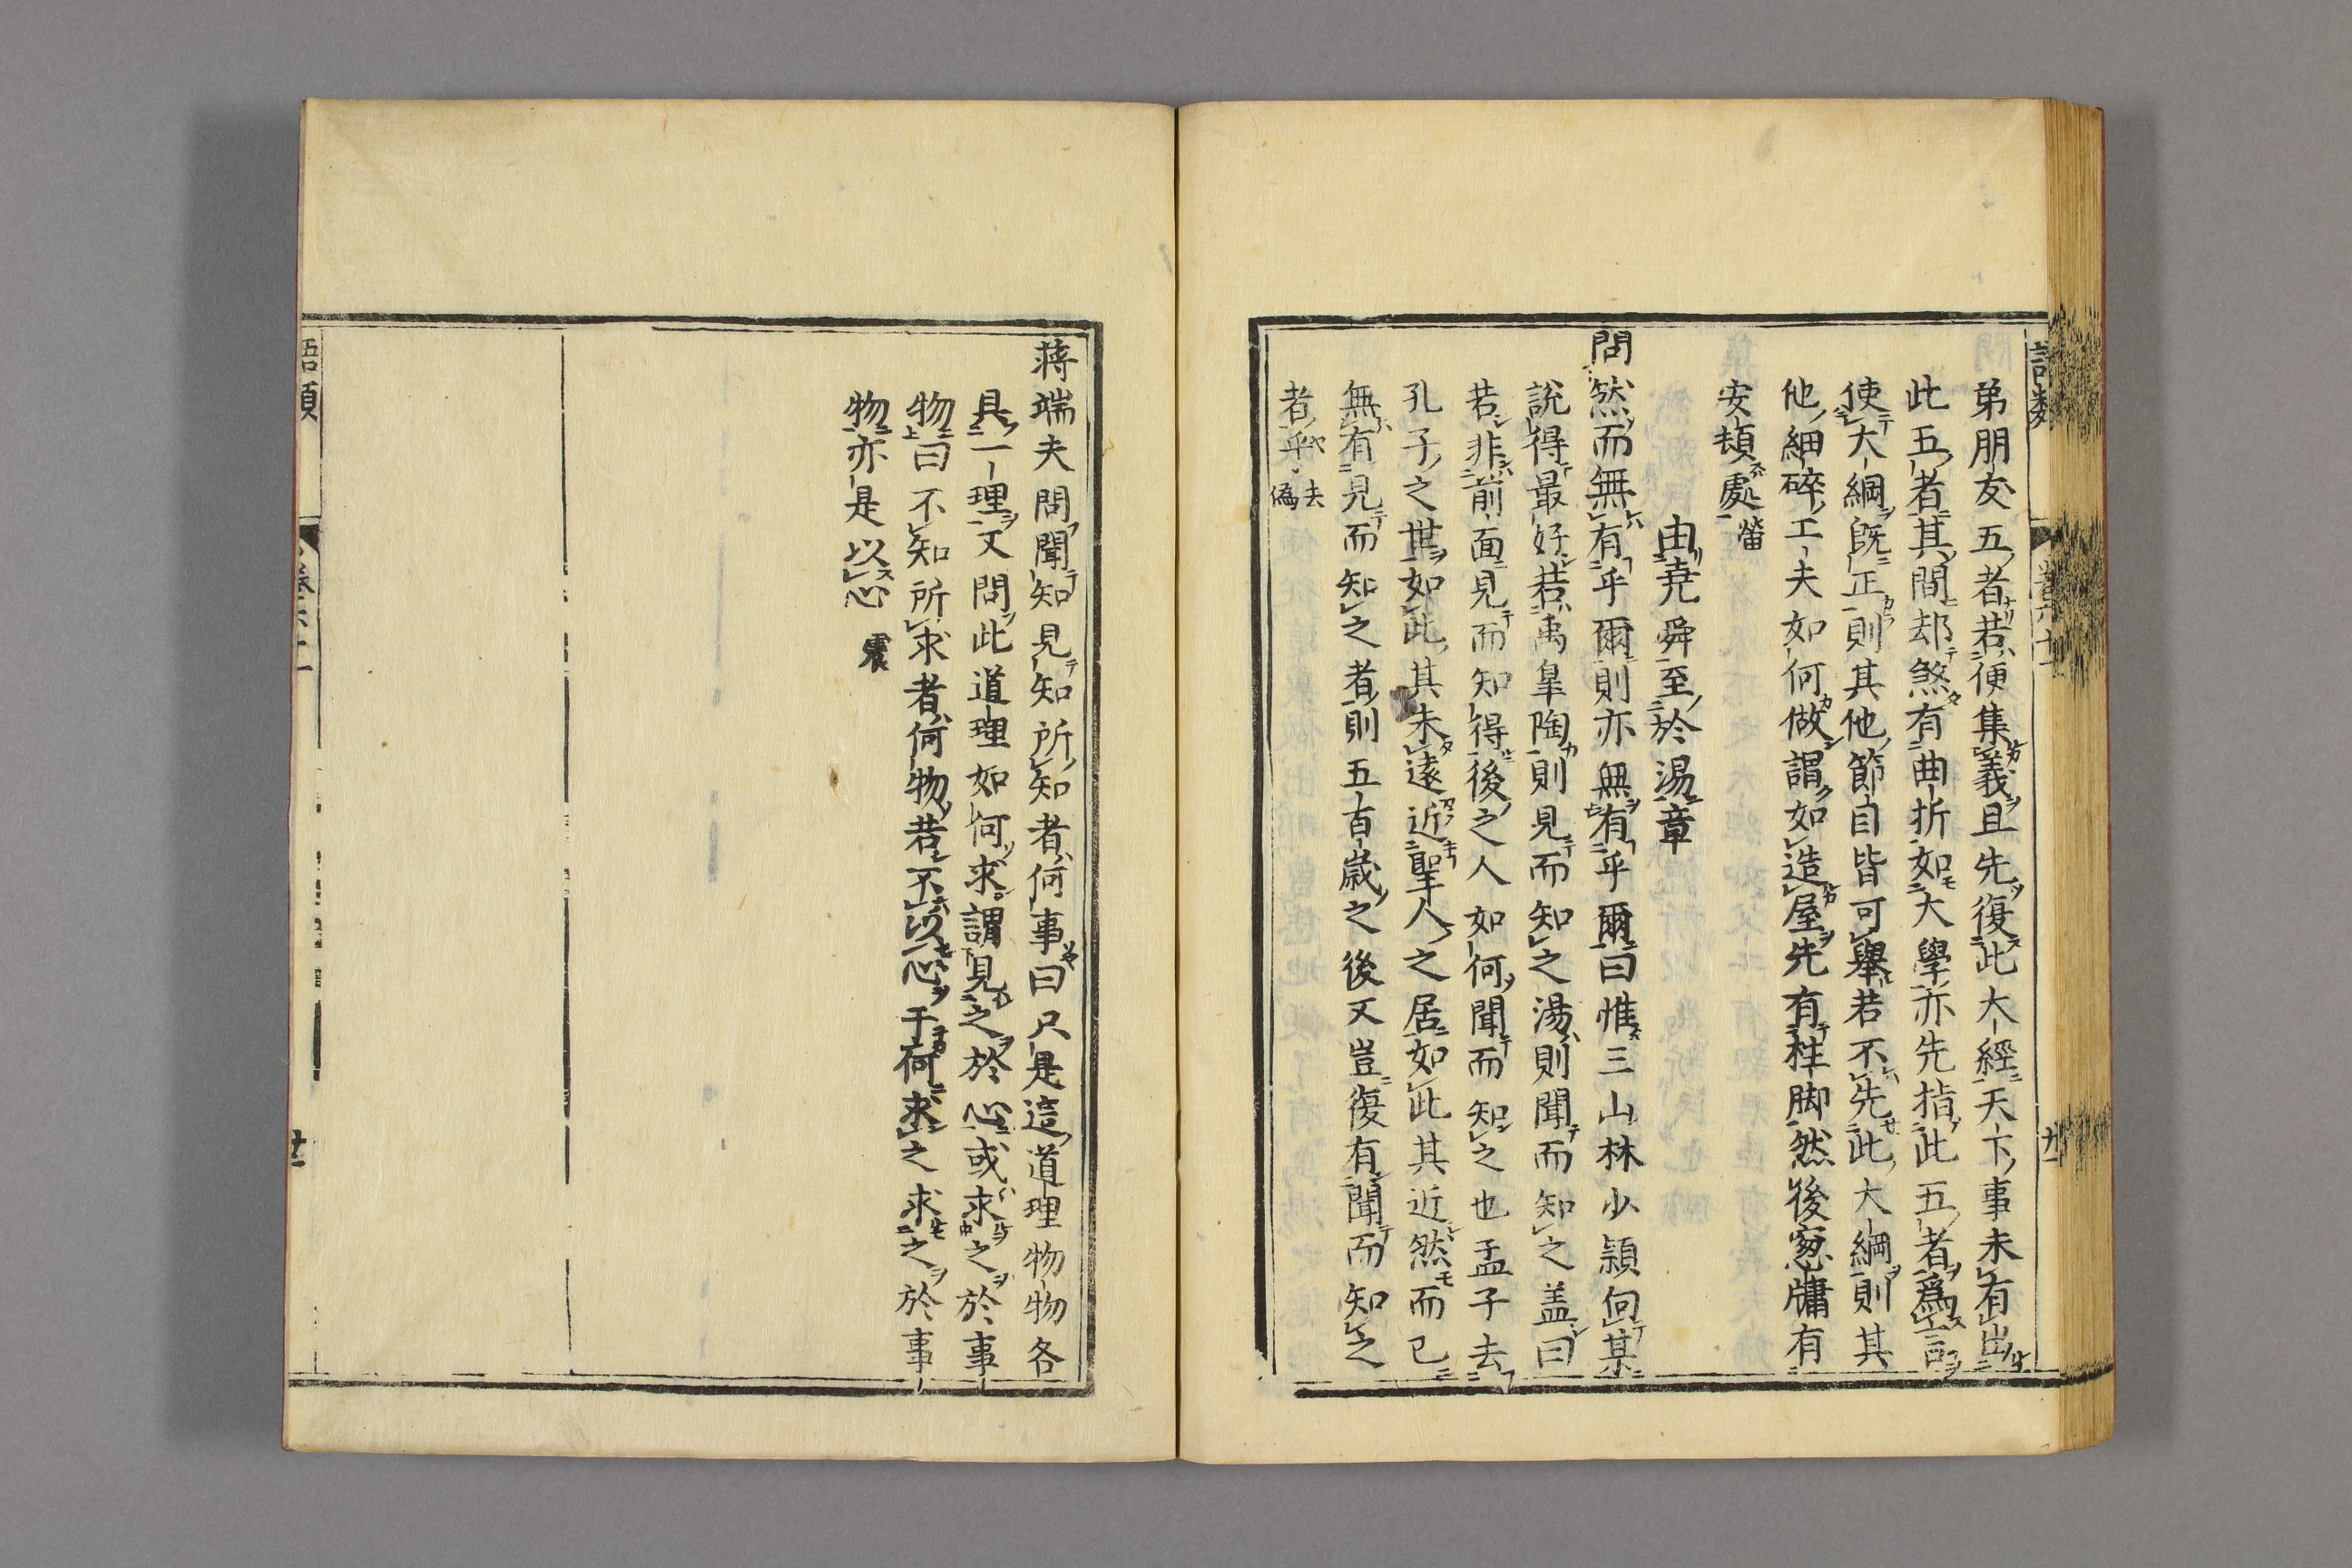 弟朋友五者若便集義且先復此大經天下事未有出
此五者其間却煞有曲折如大學亦先指此五者爲言
使大綱旣正則其他節目皆可舉若不先此大綱則其
他細碎工夫如何做謂如造屋先有柱脚然後窓牖有
安頓處㽦
由堯舜至於湯章
問然而無有乎爾則亦無有乎爾曰惟三山林少頴向某
說得最好若禹臯陶則見而知之湯則聞而知之盖曰
若非前面見而知得後之人如何聞而知之也孟子去
孔子之世如此其未遠近聖人之居如此其近然而已
無有見而知之者則五百歲之後又豈復有聞而知之
者乎去僞
蒋端夫問聞知見知所知者何事曰只是這道理物物各
具一理又問此道理如何求謂見之於心或求之於事
物曰不知所求者何物若不以心于何求之求之於事
物亦是以心 震
語類 卷六十一 廿二